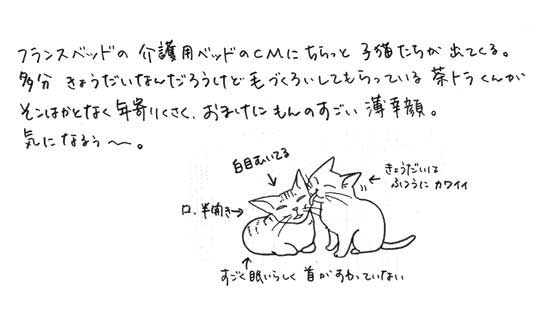 フランスベッドの 介護用ベッドのCMに ちらっと 子猫たちが 出てくる。
多分 きょうだいなんだろうけど 毛づくろいしてもらっている 茶トラくんが
そこはかとなく 年寄りくさく、おまけに もんのすごい 薄幸顔。
気になるぅ〜。
白目むいてる
きょうだいは
ふつうに カワイイ
口、半開き
すごく眠いらしく 首がすわっていない